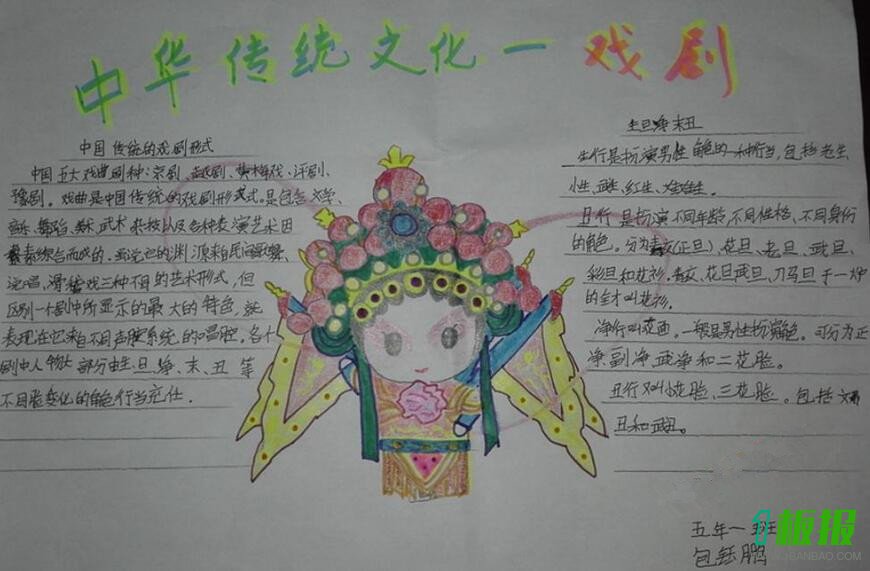 中华传统文化一戏剧
中国传统的戏剧形式
中国五大戏曲剧种:京剧、越剧、黄梅戏、评剧、
豫剧。戏曲是中国传统的戏剧形式。是包含文学、
音乐、舞蹈、美术、武术、杂技以及各种表演艺术因
素综合而成的。它的渊源来自民间歌舞、
说唱、滑稽戏三种不同的艺术形式,但
区别一个剧中所显示的最大的特色,就
表现在它来自不同声腔系统的唱腔。各个
剧中人物大部分由生、旦、净、末、丑等
不同脸变化的角色行当充任.
生旦净末丑
生行是扮演男性角色的一种行当,包括老生
小生、武生、红生、娃娃生。
旦行是扮演不同年龄,不同性格、不同身份
的角色。分为青衣(正旦),花旦、老旦、武旦、
彩旦和花衫。青衣、花旦武旦、刀马旦于一炉
的全才叫花衫。
净行叫花面。一般是男性扮演角色。可分为正
净、副净、武净和二花脸。
丑行叫小花脸、三花脸。包括文
丑和武丑。
五年一班
包钰鹏
板报